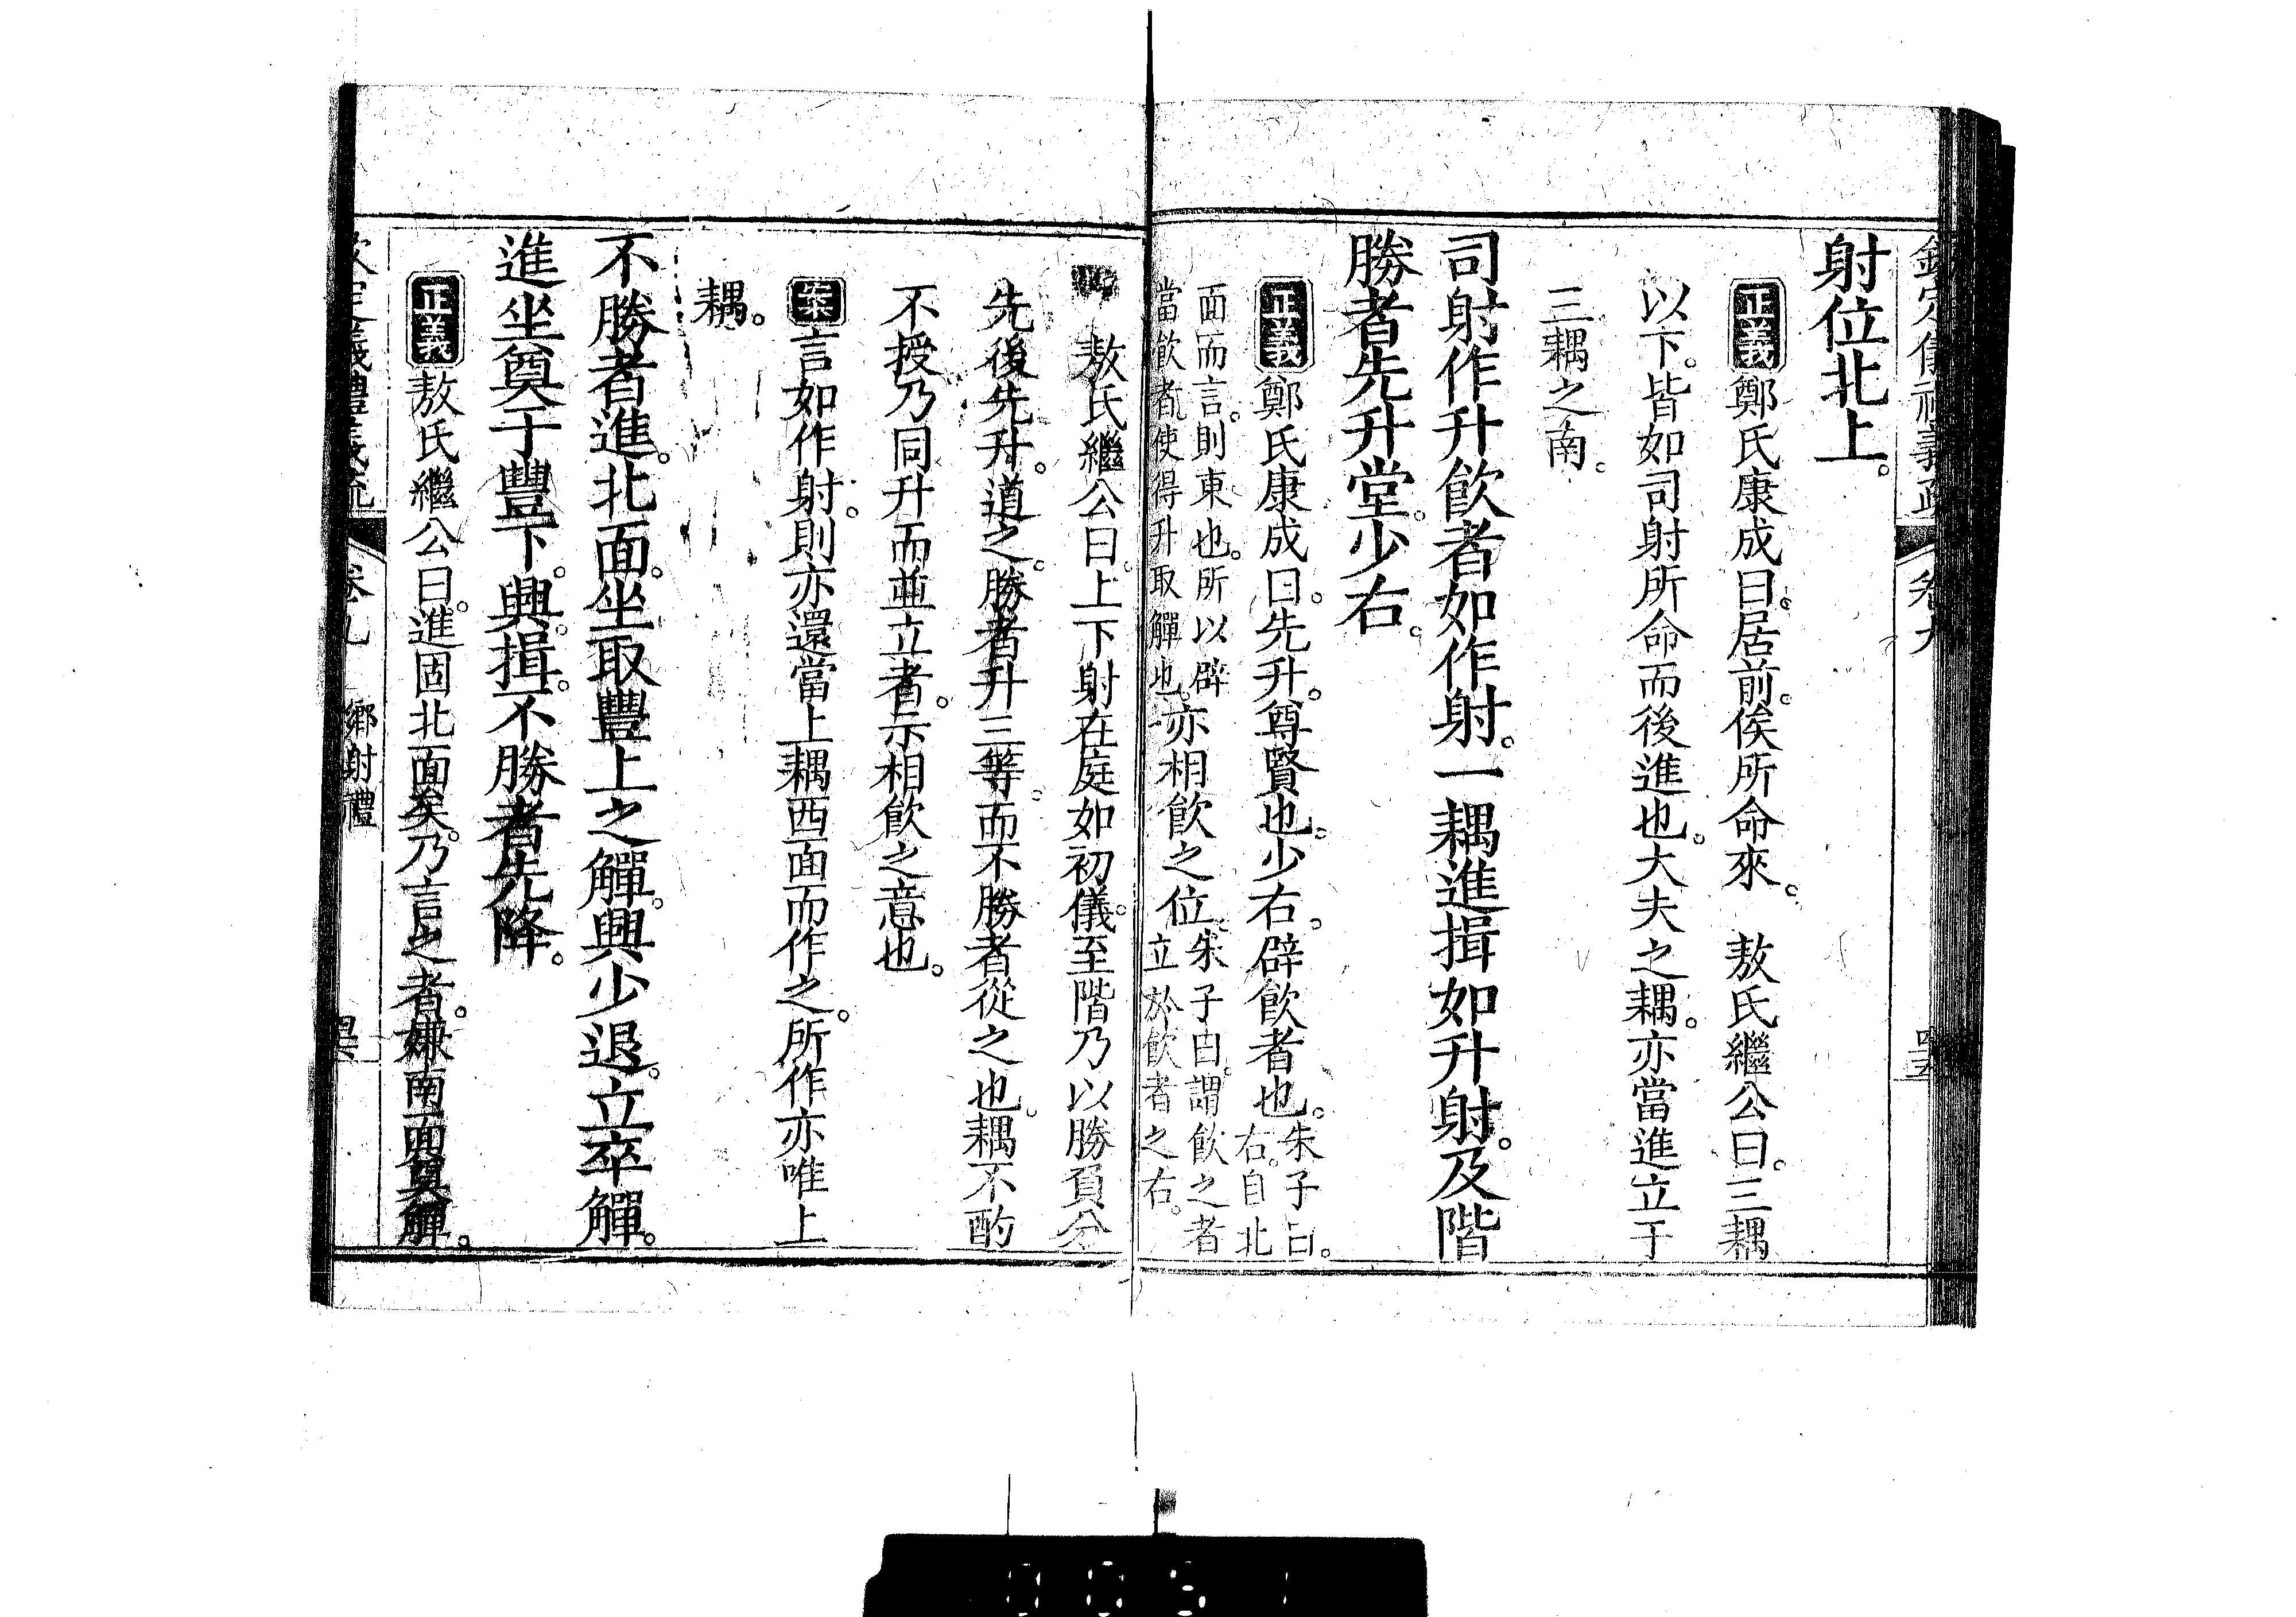 射位北上。
正義鄭氏康成曰。居前。俟所命來。　敖氏繼公曰。三耦
以下。皆如司射所命而後進也。大夫之耦。亦當進立于
三耦之南。
司射作升飲者如作射。一耦進揖如升射。及階
勝者先升堂。少右。
正義鄭氏康成曰。先升。尊賢也。少右。辟飲者也。朱子曰。右。自北
面而言。則東也。所以辟當飲者。使得升取觶也。亦相飲之位。朱子曰。謂飲之者立於飲者之右。
敖氏繼公曰。上下射在庭如初儀。至階乃以勝負分
先後先升。道之。勝者升三等。而不勝者從之也。耦不酌
不授乃同升而並立者。示相飲之意也。
案言如作射。則亦還當上耦西面而作之。所作亦唯上
耦。
不勝者進。北面。坐取豐上之觶。興少退。立卒觶。
進坐奠于豐下。興。揖。不勝者先降。
正義敖氏繼公曰。進固北面矣。乃言之者。嫌南面奠觶。
卷九　鄉射禮